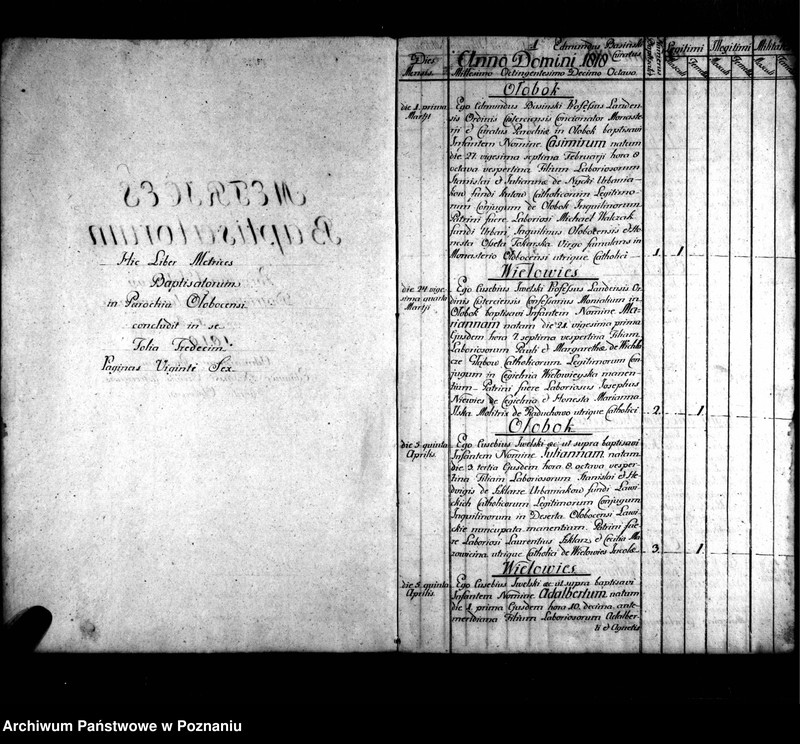 METRICES
Baptisatorum
Hic Liber Metrices
Baptisatorum
in Parochia Olobocensi
concludit in se
Folia Tredecim
Paginas Viginti Sex
1 Edmundus Basiński
Curatus
Dies
Mensis
Anno Domini 1818
Millesimo Octingentesimo Decimo Octavo
Legitimi
Illegitimi
Militares
Masculi
Femellæ
Masculi
Femellæ
Masculi
Femellæ
Olobok
die 1 prima
Martji
Ego Edmundus Basinski Professus Landen-
sis Ordinis Cisterciensis Concionator Monaste-
rii & Curatus Parochiæ in Olobok baptisavi
Infantem Nomine Casimirum natum
die 27. vigesima septima Februarji hora 8
octava vespertina Filium Laboriosorum
Stanislai & Julianne de Nycki Urbania-
kow fundi Kutow Catholicorum Legitimo-
rum Conjugum de Olobok Inquilinorum
Patrini fuere Laboriosi Michael Walczak
fundi Urbari, Inquilinus Olobocensis & Ho-
nesta Virgo famulans in
Monasterio Olobocensi utrique Catholici
1. 1
Wielowies
die 24 vige-
sima quarta
Martji
Ego Eusebius Iwelski Professus Landensis Or-
dinis Cisterciensis Confessarius Monialium in
Olobok baptisavi Infantem Nomine Ma-
riannam natam die 21. vigesima prima
Ejusdem hora 7 septima vespertina Filiam
Laboriosorum Pauli & Margarethæ de
Glabow Catholicorum Legitimorum Con-
jugum in Cegielnia Wielowieyska manen-
tium Patrini fuere Laboriosus Josephus
Niewies de Cegielnia & Honesta Marianna
Ilska Molitrix de Raduchowo utrique Catholici
2. 1.
Olobok
die 5 quinta
Aprilis
Ego Eusebius Iwelski ac ut supra baptisavi
Infantem Nomine Juliannam natam
die 3 tertia Ejusdem hora 8 octava vesper-
tina Filiam Laboriosorum Stanislai & He-
dvigis de Szklarze Urbaniakow fundi Lawi-
ckich Catholicorum Legitimorum Conjugum
Inquilinorum in Deserta Olobocensi Lawi-
ckie nuncupata manentium Patrini fue-
re Laboriosi Laurentius Szklarz & Cecilia Ma-
zowieina utrique Catholici de Wielowies Incolæ
3. 1.
Wielowies
die 5 quinta
Aprilis
Ego Eusebius Iwelski ac ut supra baptisavi
Infantem Nomine Adalbertum natum
die 1 prima Ejusdem hora 10. decima ante
meridiana Filium Laboriosorum Adalber-
ti & Agnetis
Archiwum Państwowe w Poznaniu